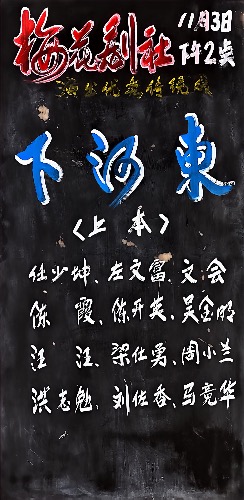 梅花剧社
11月3日
下午2点
演出优秀传统戏
下河東
〈上本〉
任少坤、左文富、文会
陈霞、陈开英、吴金明
汪汪、梁仕勇、周小兰
洪志勉、刘佐香、马竞华